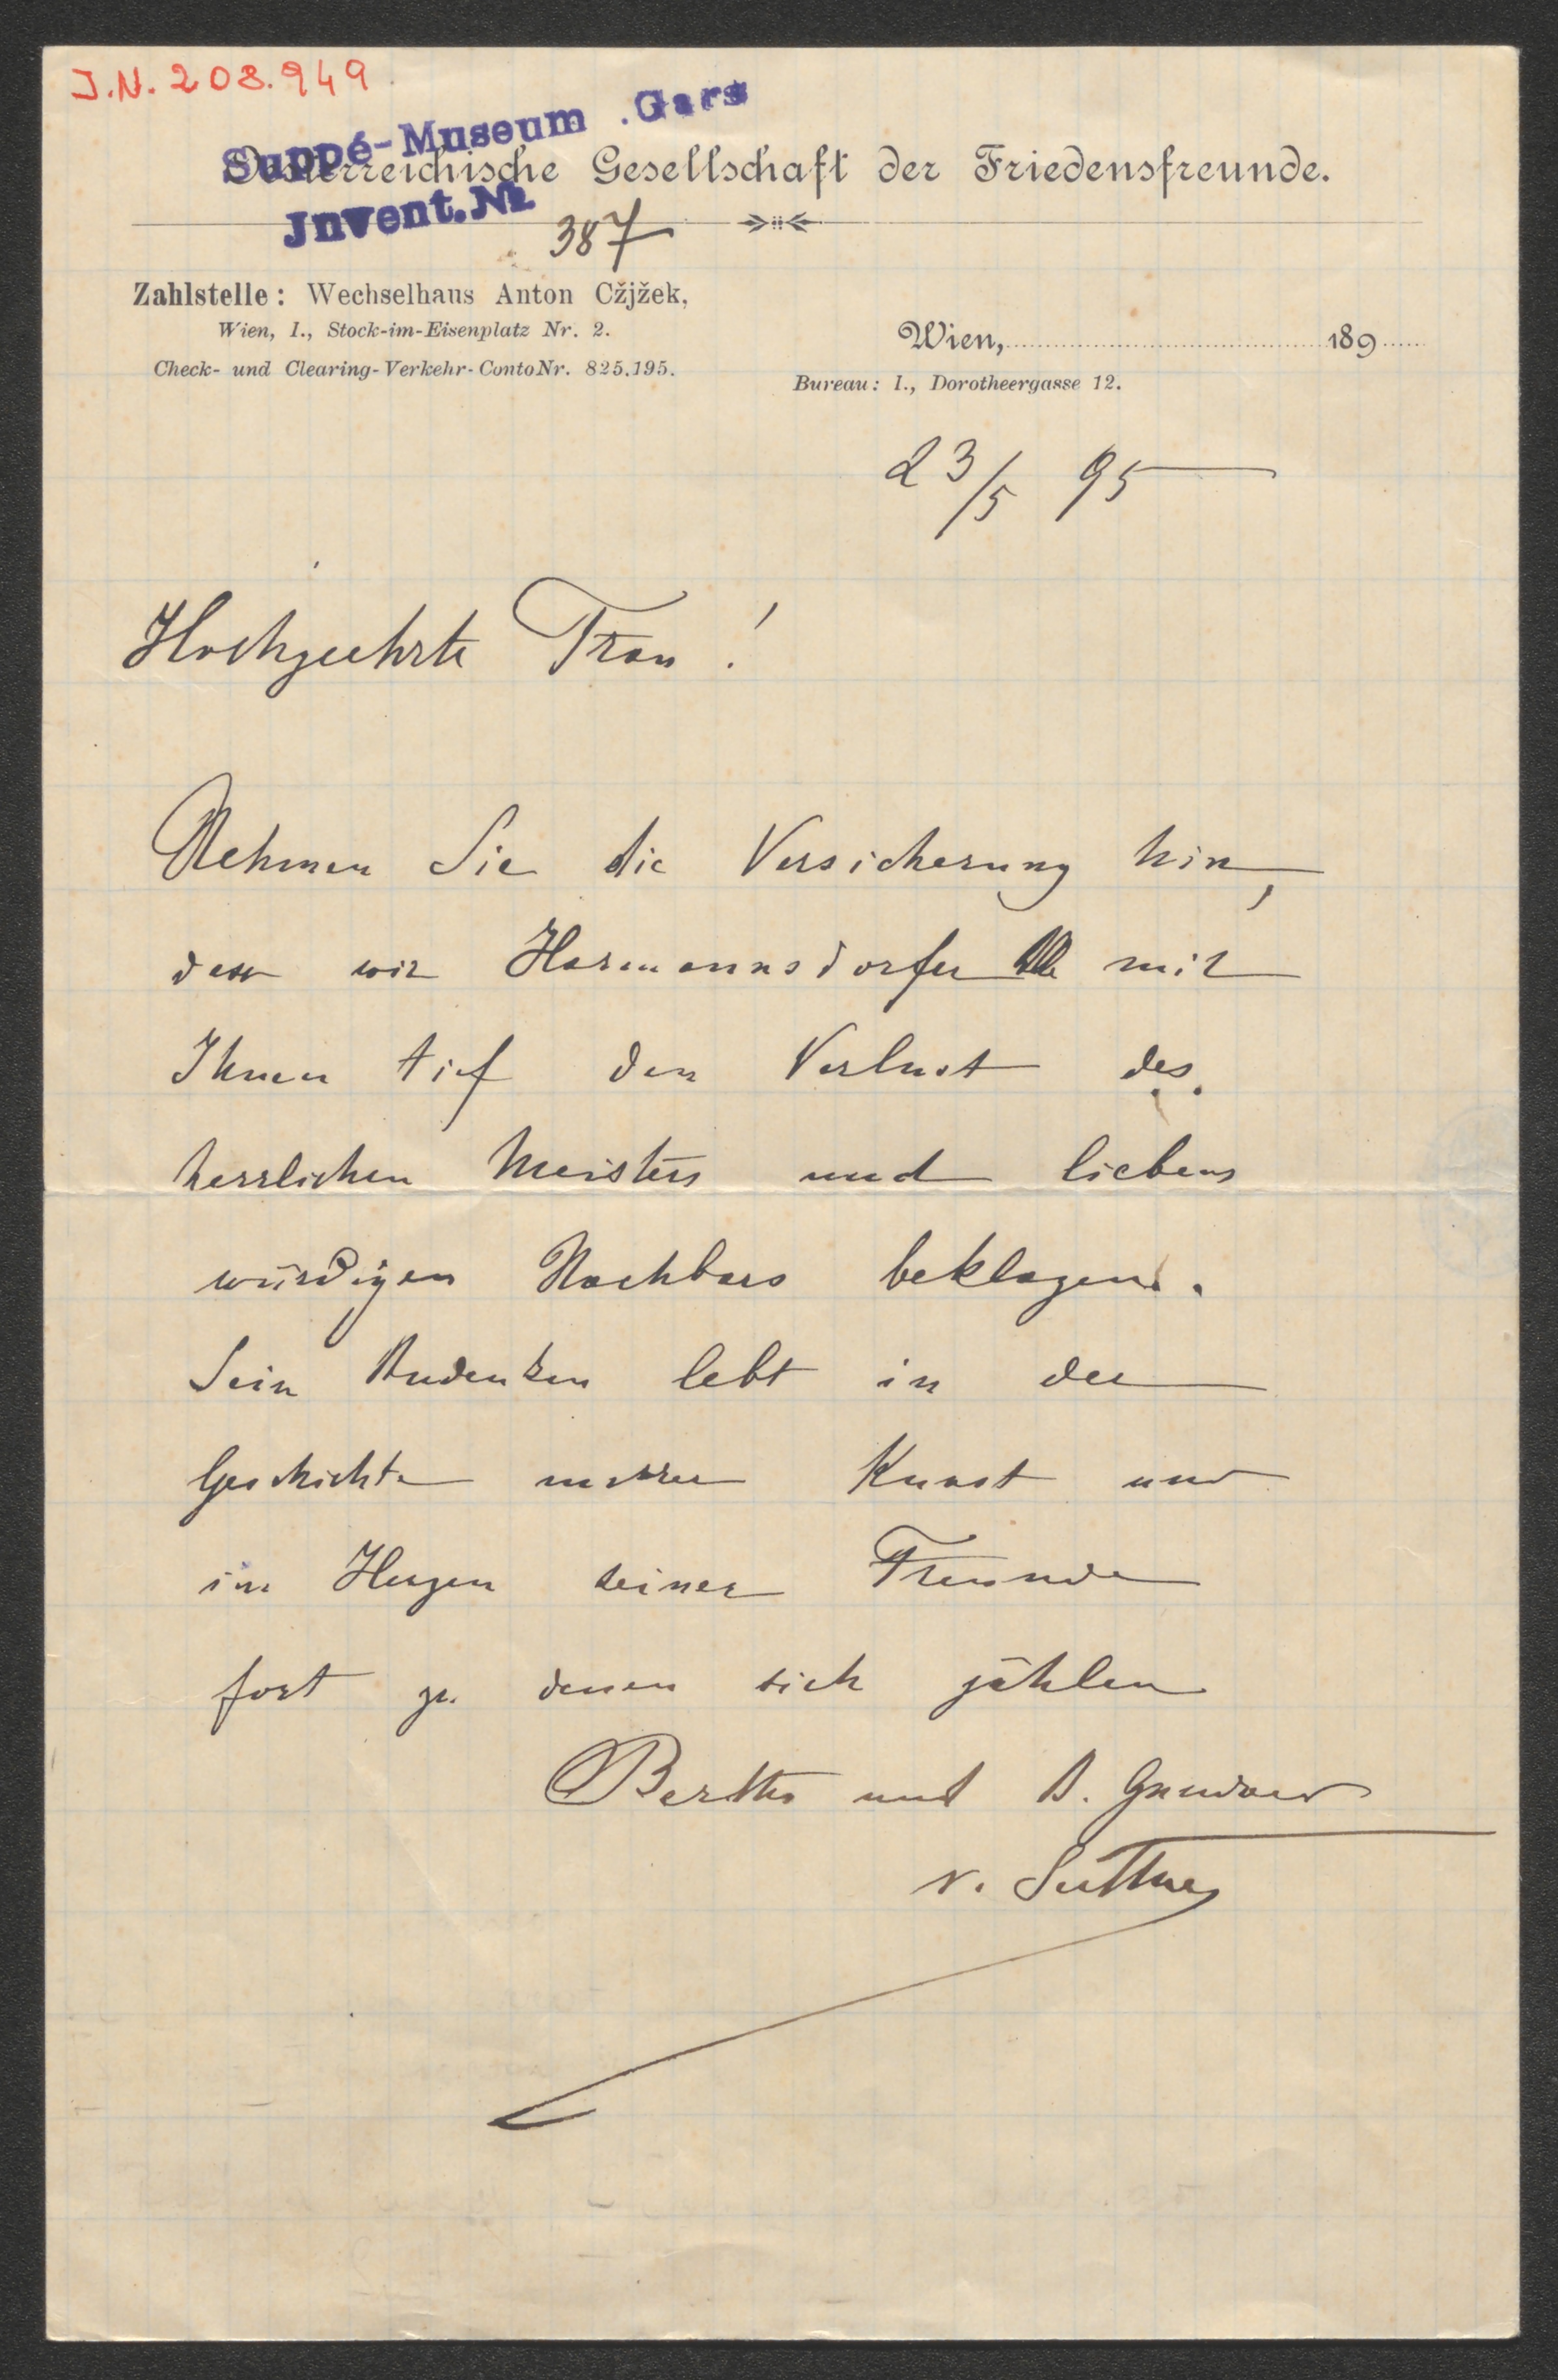 J.N. 208.949
Suppé-Museum Gars
Oesterreichische Gesellschaft der Friedensfreunde.
Invent.Nr.
387
Zahlstelle: Wechselhaus Anton Cžjžek,
Wien, I., Stock-im-Eisenplatz Nr. 2.
Check- und Clearing-Verkehr-Conto Nr. 825.195.
Wien, 189
Bureau: I., Dorotheergasse 12.
23/5 95
Hochgeehrte Frau!
Nehmen Sie die Versicherung hin,
dass wir Harmannsdorfer Alle mit
Ihnen tief den Verlust des
herrlichen Meisters und liebens
würdigen Nachbars beklagen.
Sein Andenken lebt in der
Geschichte unserer Kunst und
im Herzen seiner Freunde
fort zu denen sich zählen
Bertha und A. Gundacar
v. Suttner